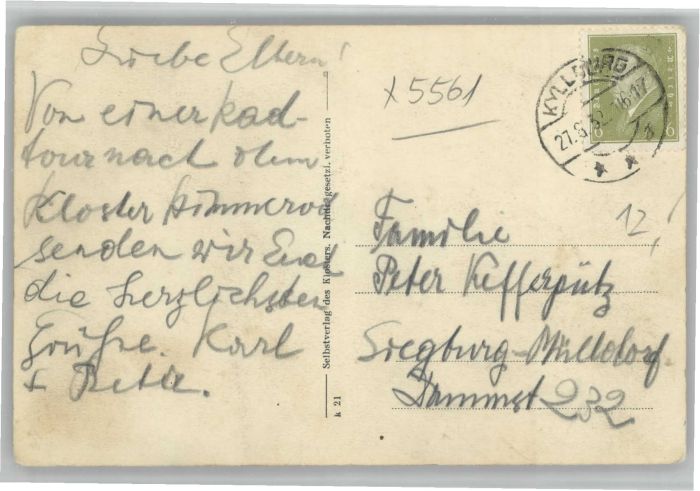 Liebe Eltern!
Von einer Rad-
tour nach dem
Kloster Himmerod
senden wir Euch
die herzlichsten
Grüße. Karl
+ Peter.
k 21 Selbstverlag des Klosters. Nachdr. gesetzl. verboten
x 5561
KYLLBURG
27.8.32. 16-17
6 6
12,
Familie
Peter Kefferpütz
Siegburg-Mülldorf
232